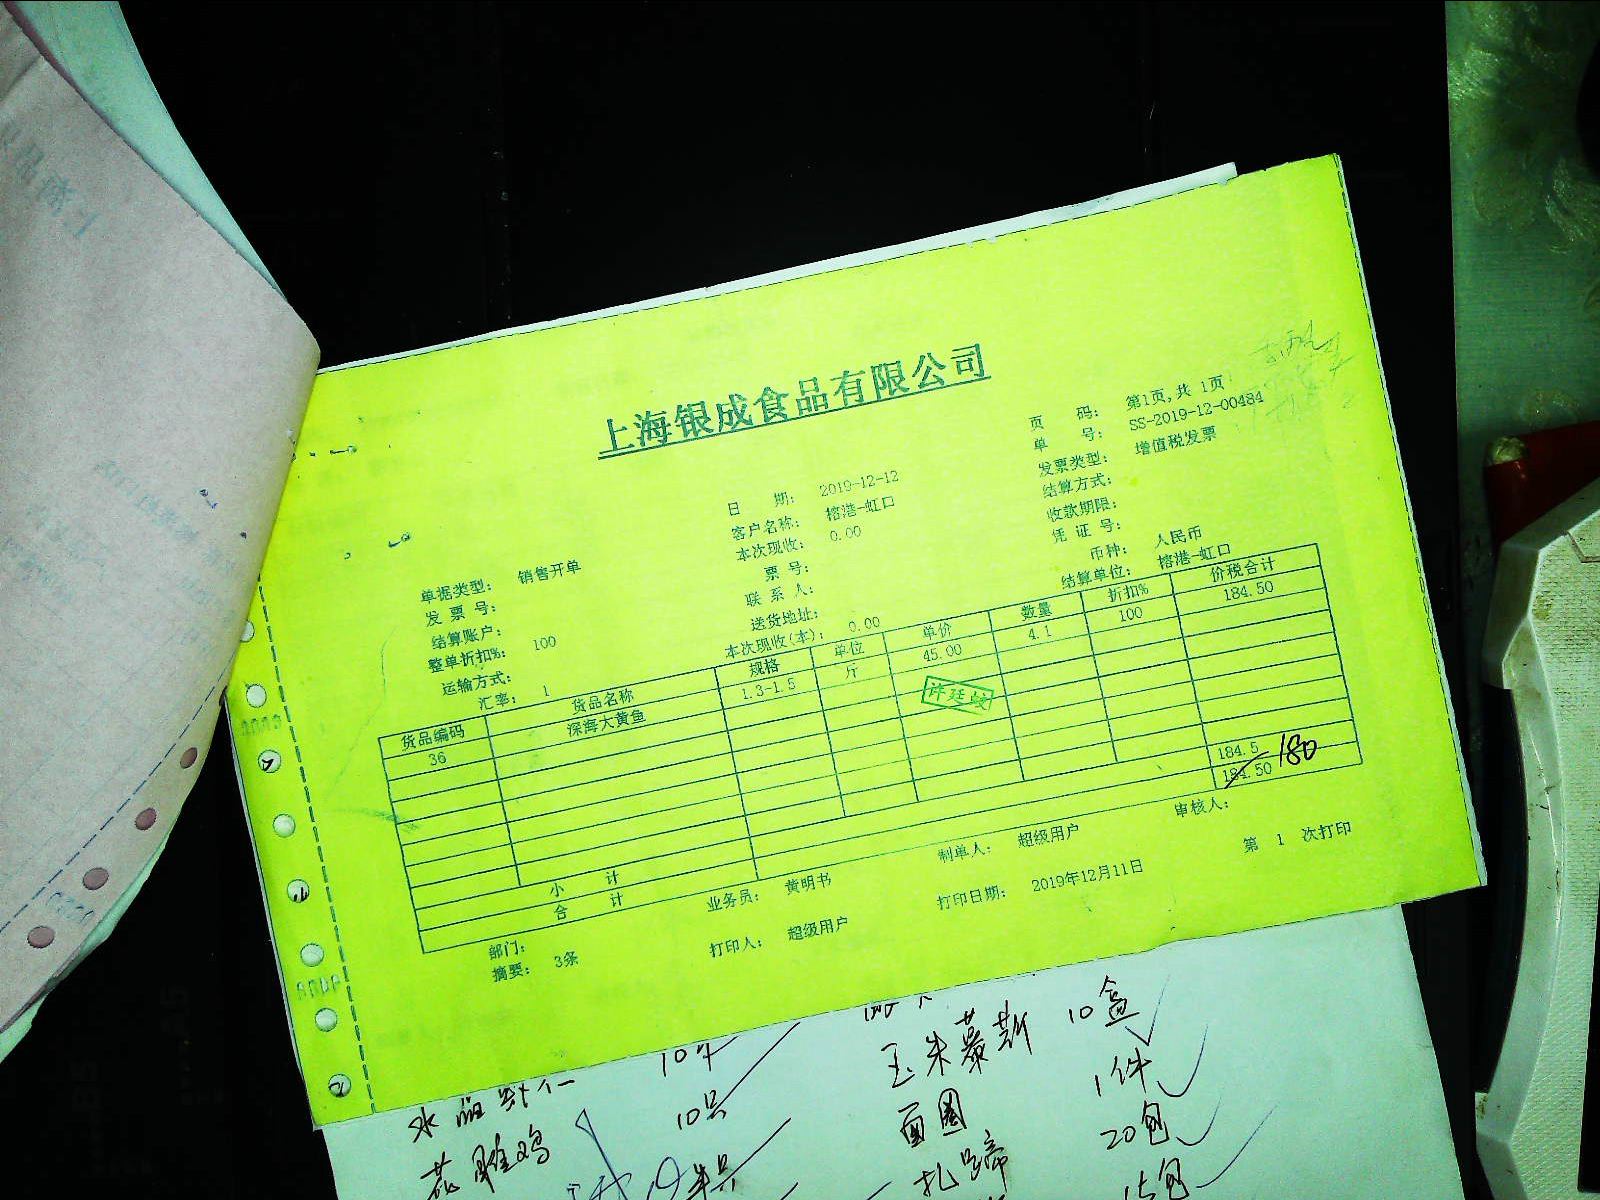 上海银成食品有限公司
页 码: 第1页,共 1页
单 号: SS-2019-12-00484
日 期: 2019-12-12
发票类型: 增值税发票
客户名称: 榕港-虹口
结算方式:
本次现收: 0.00
收款期限:
单据类型: 销售开单
票 号:
凭 证 号:
发 票 号:
联 系 人:
币种: 人民币
结算账户:
送货地址:
结算单位: 榕港-虹口
整单折扣%: 100
本次现收(本): 0.00
运输方式:
汇率: 1
货品编码 货品名称 规格 单位 单价 数量 折扣% 价税合计
36 深海大黄鱼 1.3-1.5 斤 45.00 4.1 100 184.50
许廷蛟
小 计 184.5
合 计 184.50 180
业务员: 黄明书 制单人: 超级用户 审核人:
部门:
摘要: 3条 打印人: 超级用户 打印日期: 2019年12月11日 第 1 次打印
玉米慕斯 10盒
面圈 1件
扎蹄 20包
10只
15包